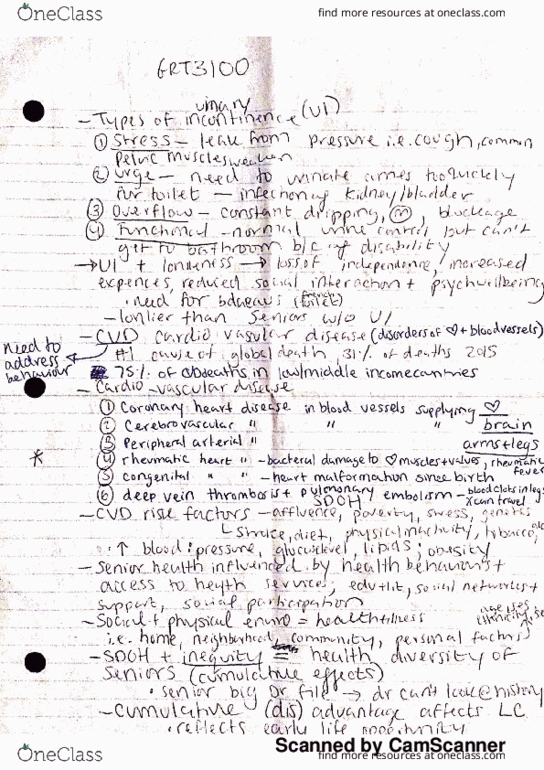 OneClass
find more resources at oneclass.com
GRT3100
urinary
- Types of incontinence (UI)
① Stress - leak from pressure i.e. cough, common
pelvic muscles weaken
② urge - need to urinate comes too quickly
for toilet - infection eg kidney/bladder
③ Overflow - constant dripping, blockage
④ Functional - normal urine control but can't
get to bathroom b/c of disability
→ UI + loneliness → loss of independence, increased
expences, reduced social interaction + psych wellbeing
• need for
- lonlier than seniors w/o UI
- CVD cardio vasular disease (disorders of ♡ + blood vessels)
need to
address
behaviour
#1 cause of global death 31% of deaths 2015
75% of deaths in low/middle income countries
- Cardio-vascular disease
① Coronary heart disease in blood vessels supplying ♡
② Cerebrovascular " " " brain
③ Peripheral arterial " arms + legs
*
④ rheumatic heart " - bacteral damage to ♡ muscles + valves, rheumatic
fever
⑤ congenital " " - heart malformation since birth
⑥ deep vein thrombosis + pulmonary embolism - blood clots in legs
can travel
SDOH
- CVD rise factors - affluence, poverty, stress, genetics
diet, physical inactivity, tobacco,
↑ blood: pressure, glucose level, lipids, obesity
- Senior health influenced by health behaviours +
access to health services, edu + lit, social networks +
support, social participation
- Social + physical enviro = health + illness
i.e. home, neighborhood, community, personal factors
- SDOH + inequity = health diversity of
seniors (cumulative effects)
• senior big Dr file → dr can't look @ history
- cumulative (dis) advantage affects LC
• reflects early life opportunity
Scanned by CamScanner
OneClass
find more resources at oneclass.com